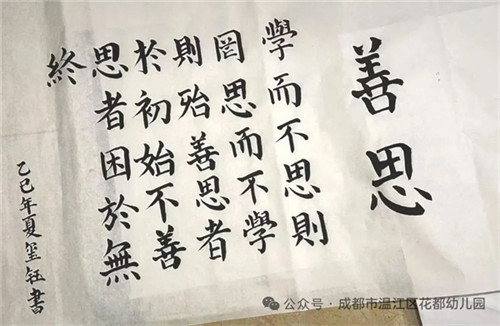 善思
學而不思則
罔思而不學
則殆善思者
於初始不善
思者困於無
終
乙巳年夏玺钰書
公众号·成都市温江区花都幼儿园